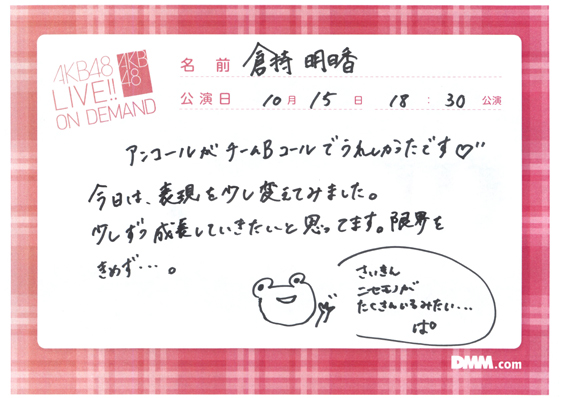 AKB48
LIVE!!
ON DEMAND
AKB
48
名前 倉持 明日香
公演日 10月 15日 18:30 公演
アンコールがチームBコールでうれしかったです♡"
今日は、表現を少し変えてみました。
少しずつ成長していきたいと思ってます。限界を
きめず・・・。
さいきん
ニセモノが
たくさんいるみたい・・・
ぱ
DMM.com